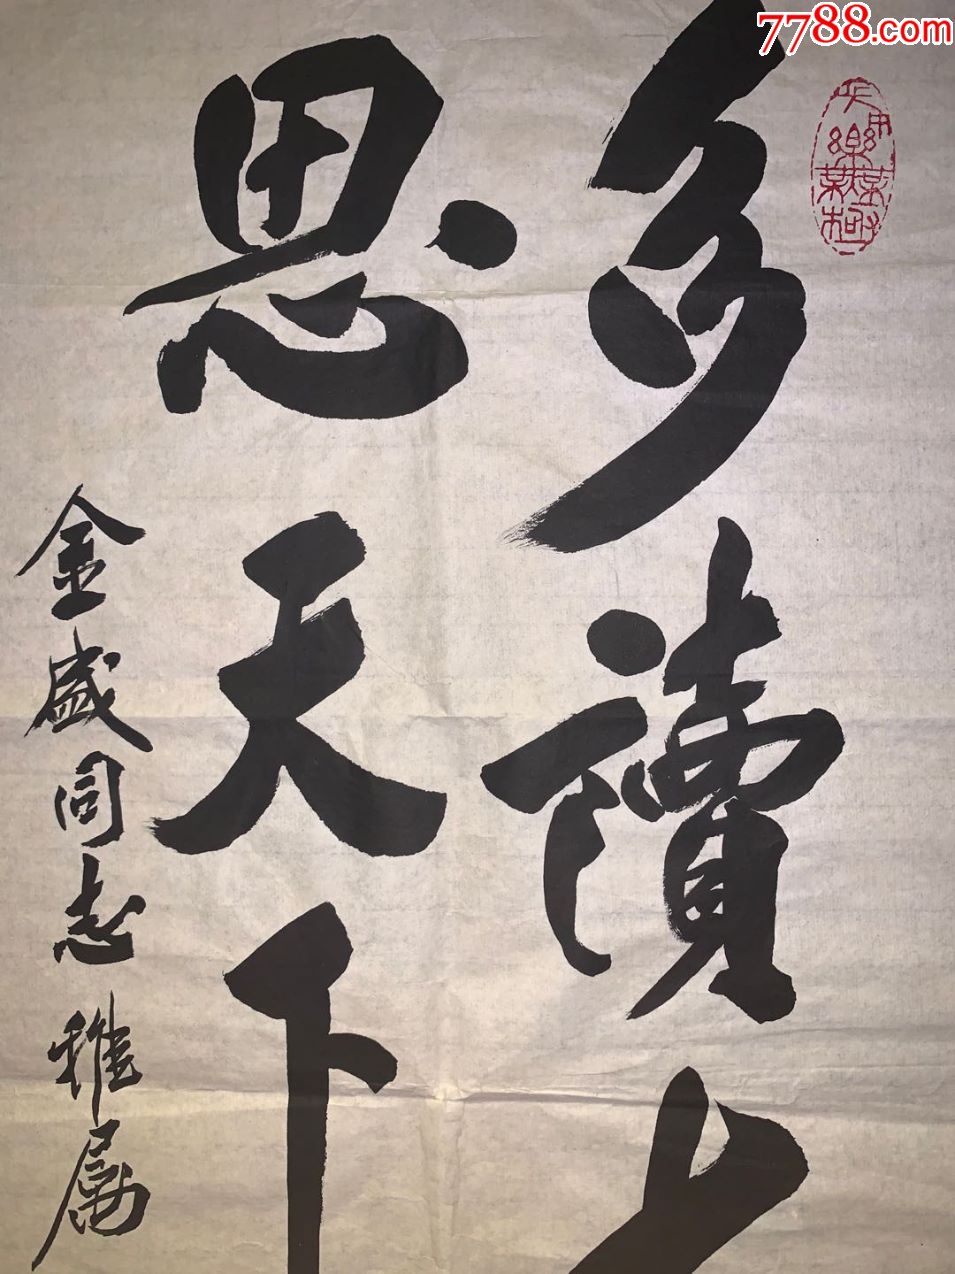 7788.com
多讀
思天下
金盛同志雅屬